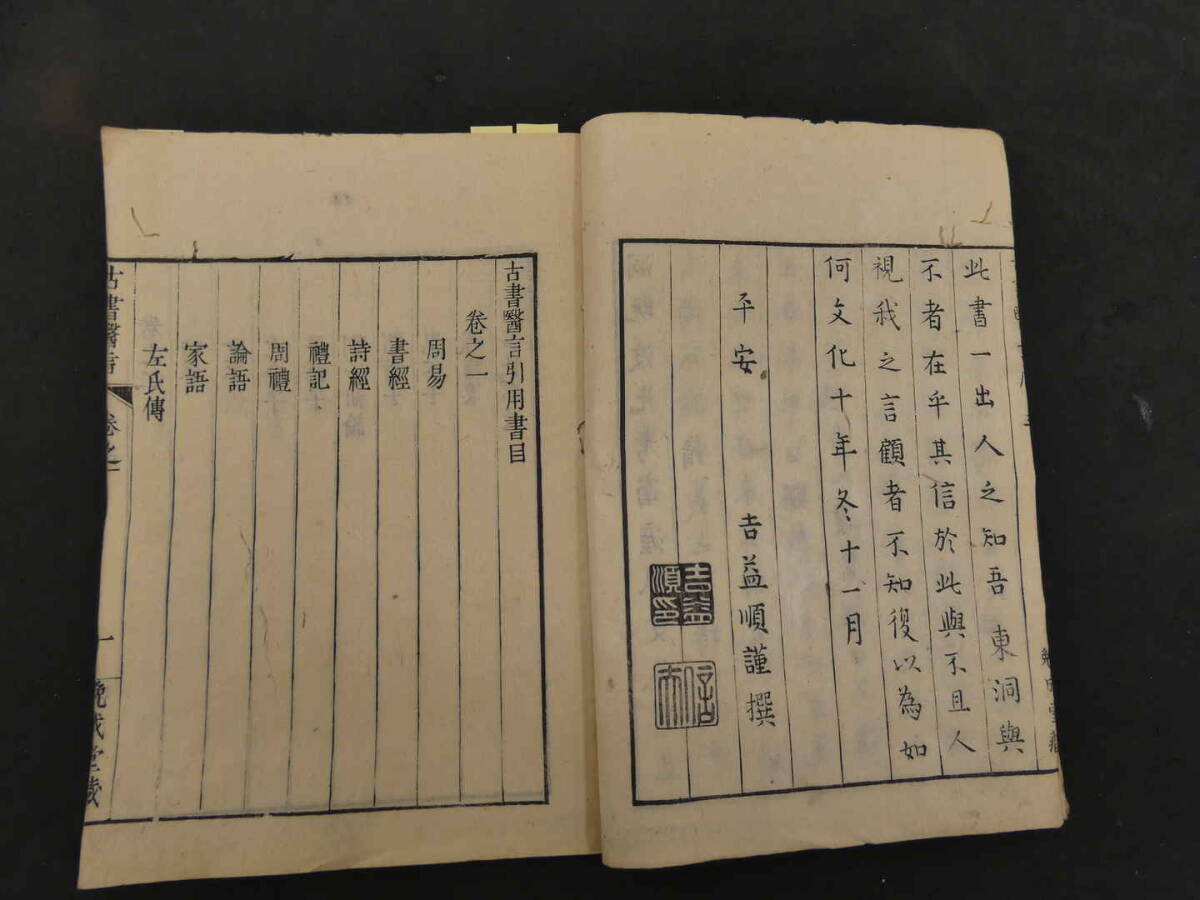 此書一出人之知吾東洞與
不者在乎其信於此與不且人
視我之言顧者不知後以為如
何文化十年冬十一月
平安 吉益順謹撰
吉益順印
古書醫言引用書目
卷之一
周易
書經
詩經
禮記
周禮
論語
家語
左氏傳
古書醫言 卷之一 一 晩成堂藏